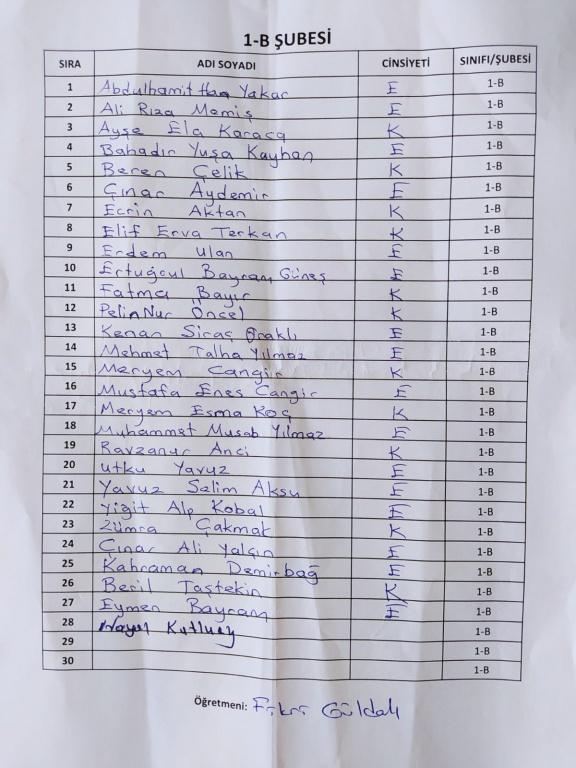 1-B ŞUBESİ
SIRA ADI SOYADI CİNSİYETİ SINIFI/ŞUBESİ
1 Abdulhamit Han Yakar E 1-B
2 Ali Rıza Memiş E 1-B
3 Ayşe Ela Karaca K 1-B
4 Bahadır Yuşa Kayhan E 1-B
5 Beren Çelik K 1-B
6 Çınar Aydemir E 1-B
7 Ecrin Aktan K 1-B
8 Elif Erva Terkan K 1-B
9 Erdem Ulan E 1-B
10 Ertuğrul Bayram Güneş E 1-B
11 Fatma Bayır K 1-B
12 Pelin Nur Öncel K 1-B
13 Kenan Siraç Oraklı E 1-B
14 Mehmet Talha Yılmaz E 1-B
15 Meryem Cangir K 1-B
16 Mustafa Enes Cangir E 1-B
17 Meryem Esma Koç K 1-B
18 Muhammet Musab Yılmaz E 1-B
19 Ravzanur Anci K 1-B
20 Utku Yavuz E 1-B
21 Yavuz Selim Aksu E 1-B
22 Yiğit Alp Kobal E 1-B
23 Zümra Çakmak K 1-B
24 Çınar Ali Yalçın E 1-B
25 Kahraman Demirbağ E 1-B
26 Beril Taştekin K 1-B
27 Eymen Bayram E 1-B
28 1-B
29 1-B
30 1-B
Öğretmeni: Fikri Güldalı